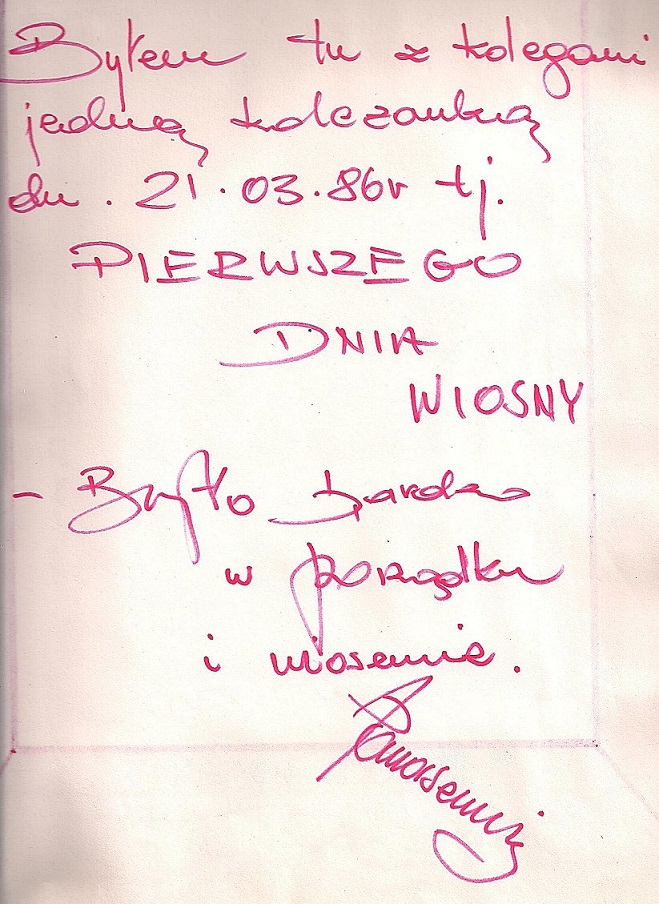 Byłem tu z kolegami
jedną koleżanką
dn. 21.03.86r tj.
PIERWSZEGO
DNIA
WIOSNY
- Było bardzo
w porządku
i wiosennie.